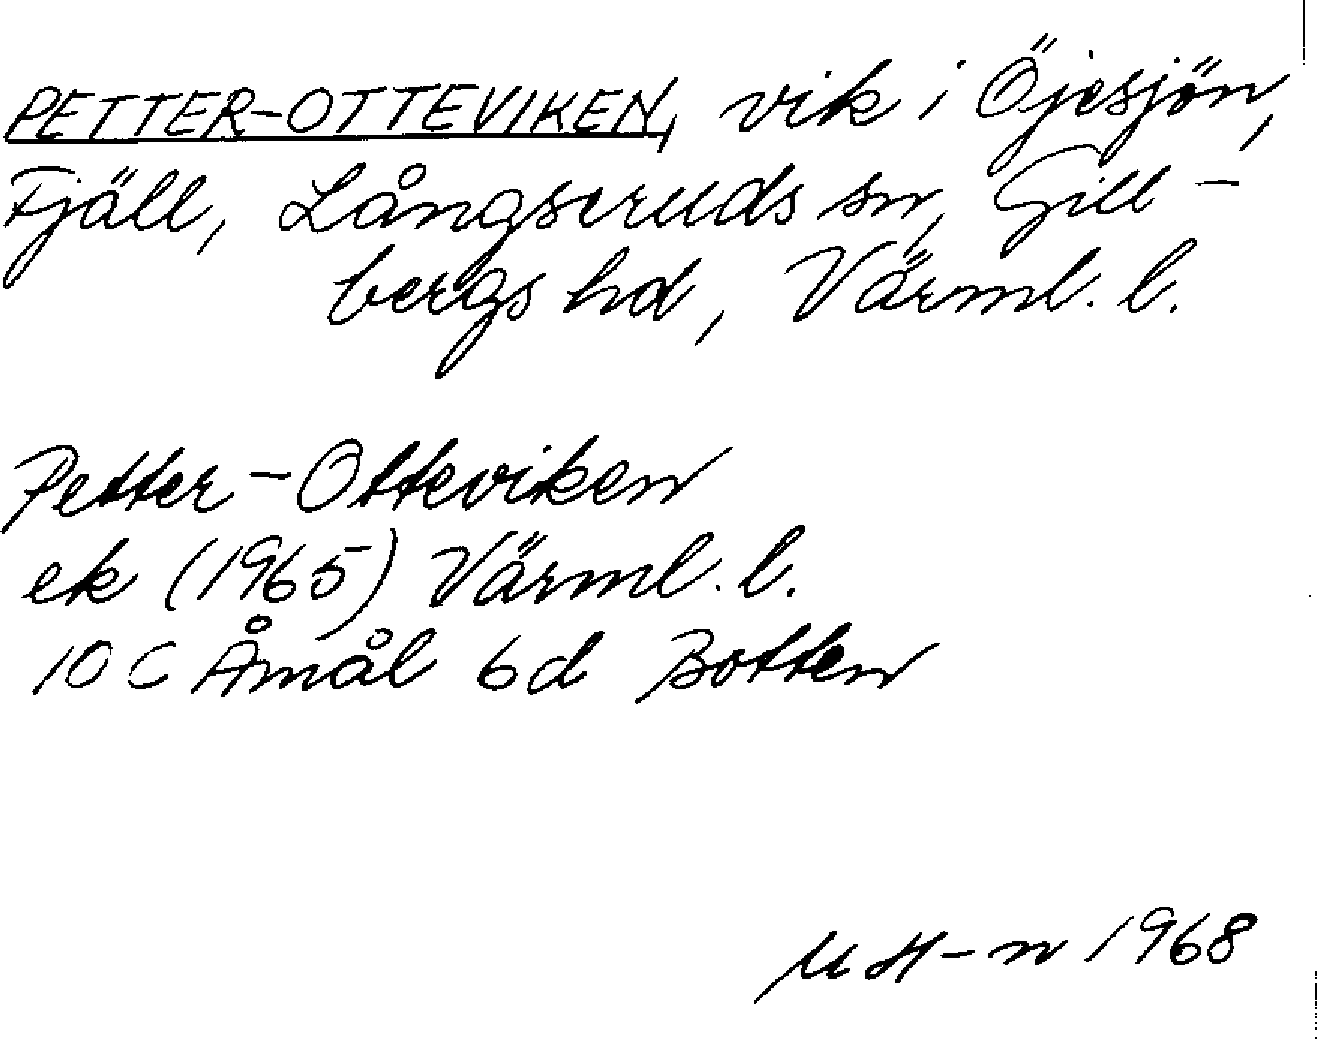 PETTER-OTTEVIKEN, vik i Öjesjön,
Fjäll, Långseruds sn, Gill-
bergs hd, Värml. l.
Petter-Otteviken
ek (1965) Värml. l.
10 C Åmål 6d Botten
MH-n 1968